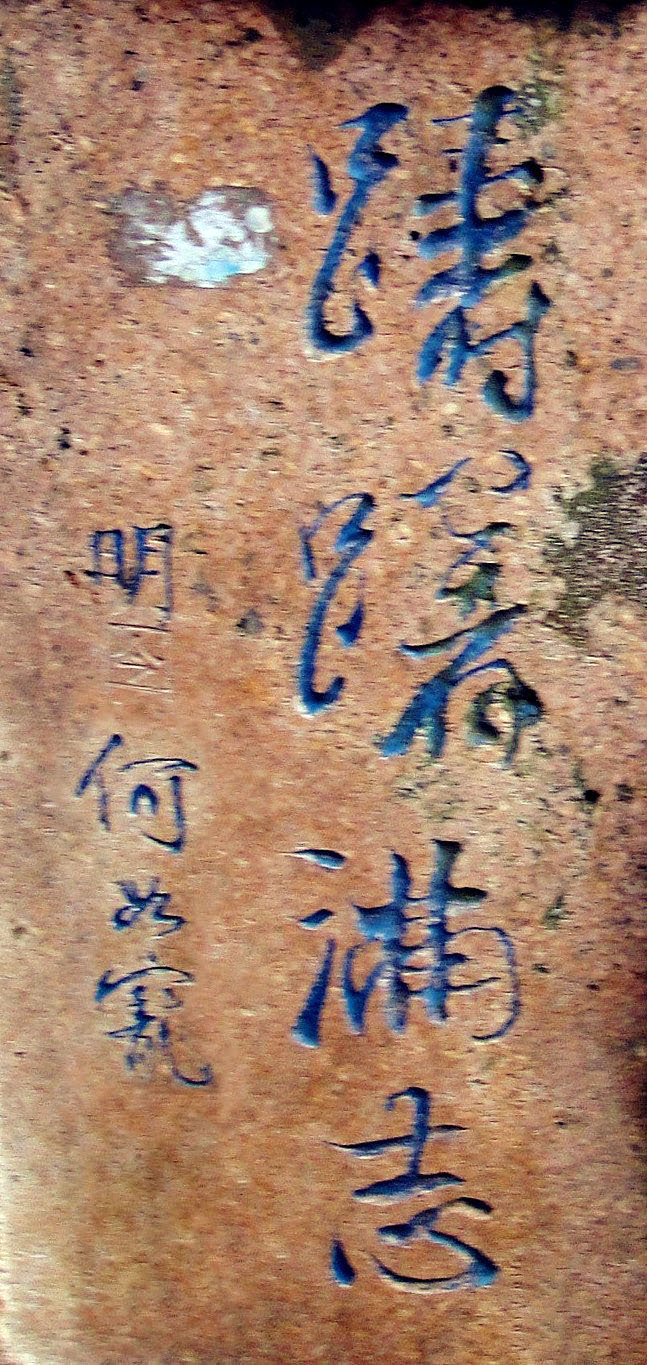 躊躇滿志
明 何如寵